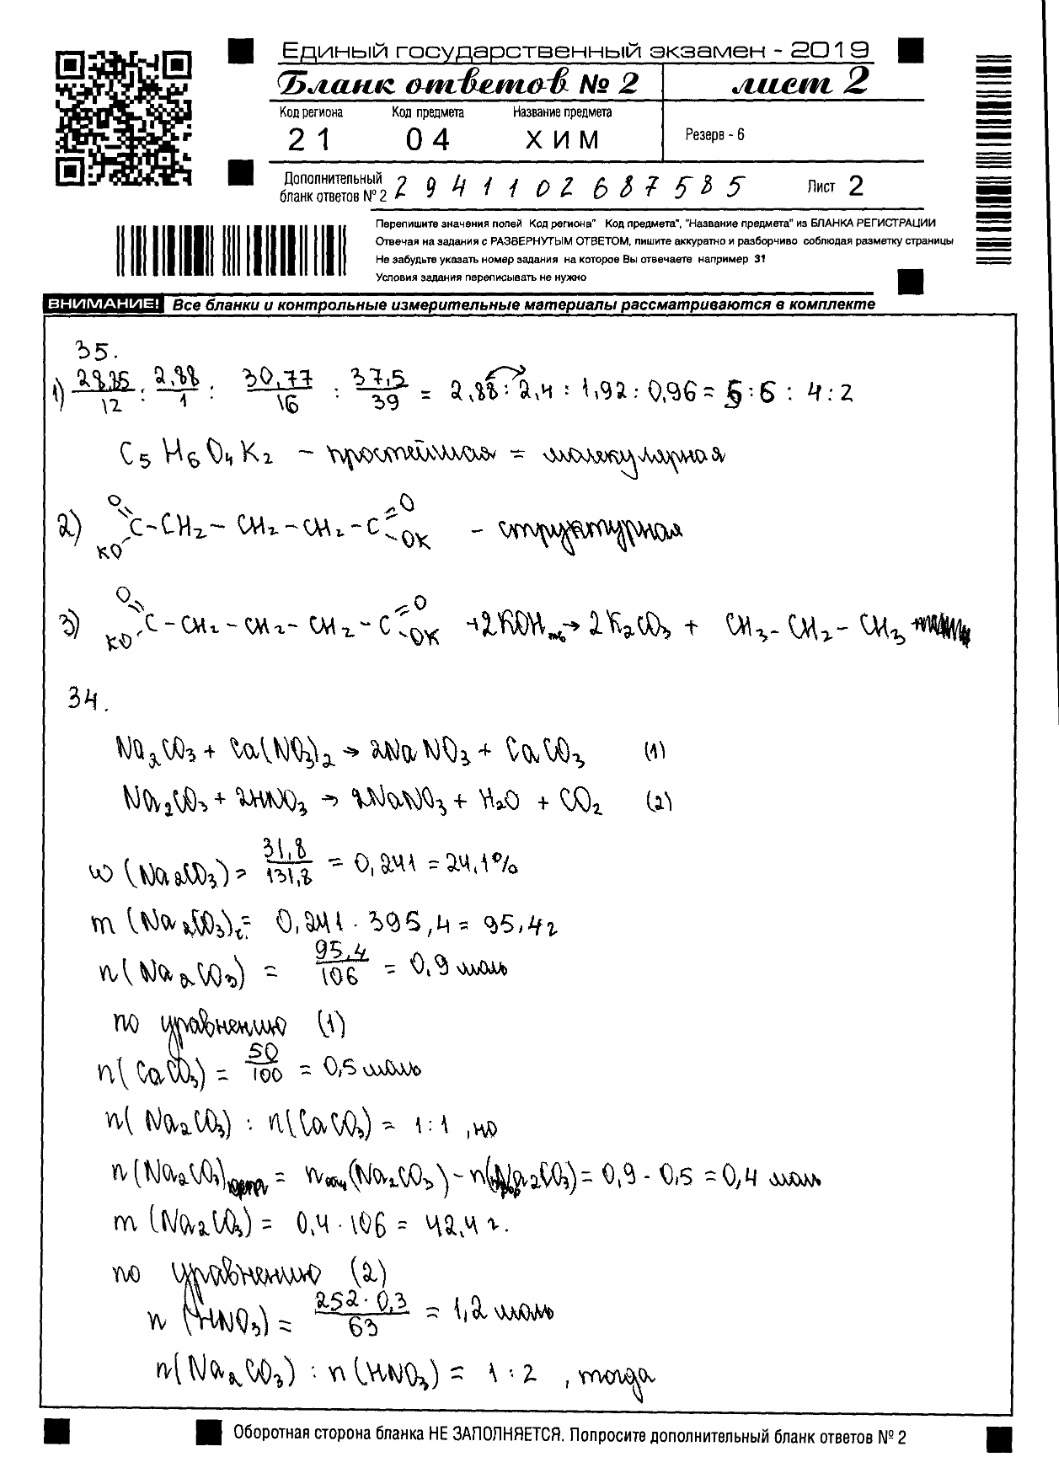 Единый государственный экзамен - 2019
Бланк ответов № 2 лист 2
Код региона Код предмета Название предмета
21 04 ХИМ Резерв - 6
Дополнительный бланк ответов № 2 2941102687585 Лист 2
Перепишите значения полей "Код региона" "Код предмета", "Название предмета" из БЛАНКА РЕГИСТРАЦИИ
Отвечая на задания с РАЗВЕРНУТЫМ ОТВЕТОМ, пишите аккуратно и разборчиво соблюдая разметку страницы
Не забудьте указать номер задания на которое Вы отвечаете например 31
Условия задания переписывать не нужно
ВНИМАНИЕ! Все бланки и контрольные измерительные материалы рассматриваются в комплекте
35.
1) 28,85/12 : 2,88/1 : 30,77/16 : 37,5/39 = 2,88 : 2,4 : 1,92 : 0,96 = 5 : 6 : 4 : 2
C₅H₆O₄K₂ – простейшая = молекулярная
2) O=C(KO)-CH₂-CH₂-CH₂-C(=O)-OK – структурная
3) O=C(KO)-CH₂-CH₂-CH₂-C(=O)-OK +2KOH тв → 2K₂CO₃ + CH₃-CH₂-CH₃
34.
Na₂CO₃ + Ca(NO₃)₂ → 2NaNO₃ + CaCO₃ (1)
Na₂CO₃ + 2HNO₃ → 2NaNO₃ + H₂O + CO₂ (2)
w (Na₂CO₃) = 31,8/131,8 = 0,241 = 24,1%
m (Na₂CO₃) = 0,241 · 395,4 = 95,4г
n(Na₂CO₃) = 95,4/106 = 0,9 моль
по уравнению (1)
n(CaCO₃) = 50/100 = 0,5 моль
n(Na₂CO₃) : n(CaCO₃) = 1:1, но
n(Na₂CO₃) = n общ (Na₂CO₃) – n(Na₂CO₃) = 0,9 - 0,5 = 0,4 моль
m (Na₂CO₃) = 0,4 · 106 = 42,4 г.
по уравнению (2)
n (HNO₃) = 252 · 0,3/63 = 1,2 моль
n(Na₂CO₃) : n(HNO₃) = 1 : 2, тогда
Оборотная сторона бланка НЕ ЗАПОЛНЯЕТСЯ. Попросите дополнительный бланк ответов № 2